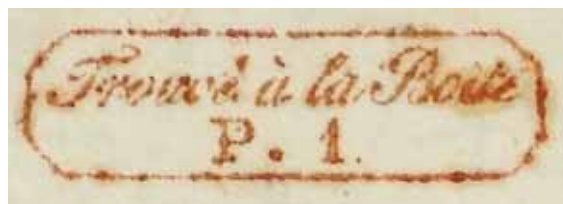 Trouvé à la Boite
P. 1.